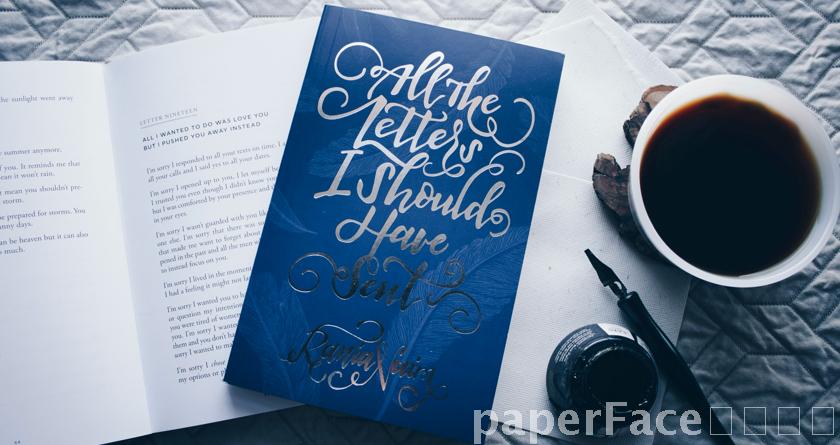 he sunlight went away
e summer anymore.
of you. It reminds me that
ean it won't rain.
t mean you shouldn't pre-
storm.
be prepared for storms. You
unny days.
an be heaven but it can also
much.
64
LETTER NINETEEN
ALL I WANTED TO DO WAS LOVE YOU
BUT I PUSHED YOU AWAY INSTEAD
I'm sorry I responded to all your texts on time. I
all your calls and I said yes to all your dates.
I'm sorry I opened up to you, I let myself
I trusted you even though I didn't know
but I was comforted by your presence and
in your eyes.
I'm sorry I wasn't guarded with you like
one else. I'm sorry that there was
that made me want to forget about
pened in the past and all the men
to instead focus on you.
I'm sorry I lived in the moment
I had a feeling it might not
I'm sorry I wanted you to
or question my intention
you were tired of women
them and you don't
sorry I wanted to
I'm sorry I
my options
All the
Letters
I Should
Have
Sent
Rania Naim
paperFace